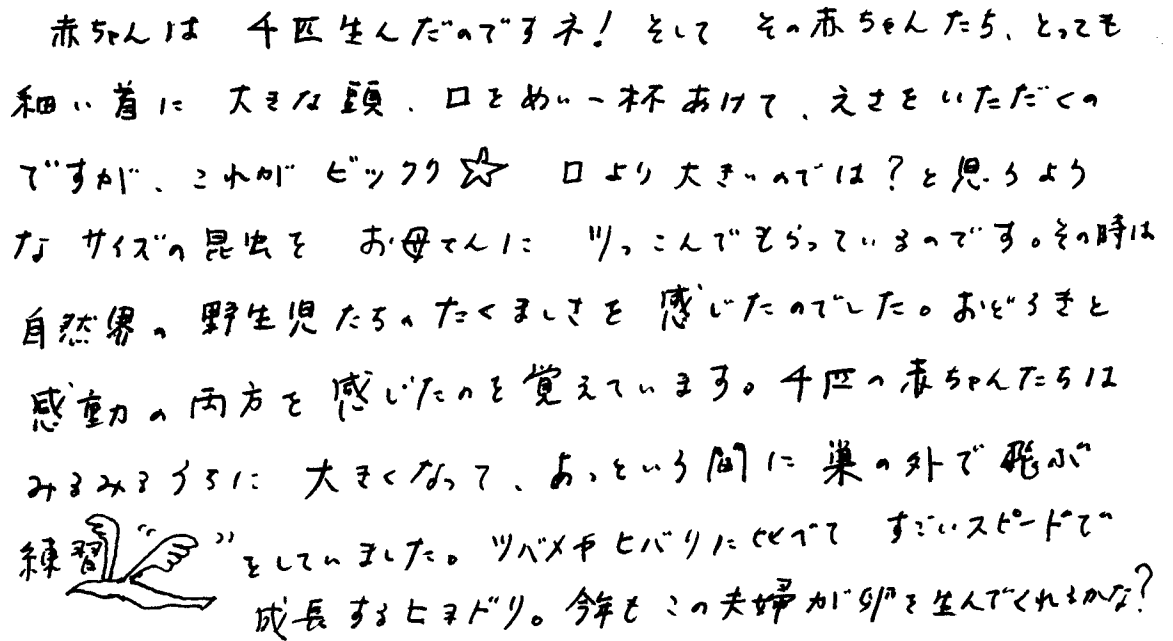 赤ちゃんは 千匹生んだのですネ! そして その赤ちゃんたち、とっても
細い首に 大きな頭、口をめい一杯あけて、えさをいただくの
ですが、これが ビックリ☆ 口より大きいのでは?と思うよう
なサイズの昆虫を お母さんに ツっこんでもらっているのです。その時は
自然界の野生児たちのたくましさを感じたのでした。おどろきと
感動の両方を感じたのを覚えています。千匹の赤ちゃんたちは
みるみるうちに 大きくなって、あっという間に 巣の外で飛ぶ
練習 をしていました。ツバメやヒバリに比べて すごいスピードで
成長するヒヨドリ。今年も この夫婦が卵を生んでくれるかな?